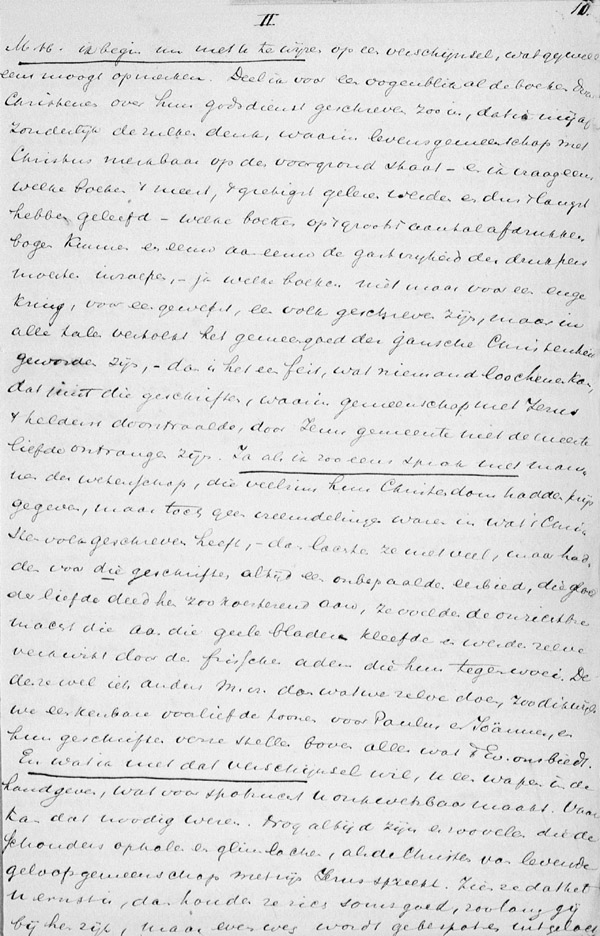 II
10.
M. H. ik begin nu met u te wijzen op een verschijnsel, wat gij wel
eens moogt opmerken. Deel ik voor een oogenblik al de boeken door
Christenen over hun godsdienst geschreven zoo in, dat ik mij af-
zonderlijk dezulken denk, waarin levensgemeenschap met
Christus merkbaar op den voorgrond staat – en ik vraag eens
welke boeken 't meest, 't gretigst gelezen werden en dus 't langst
hebben geleefd – welke boeken op 't grootst aantal afdrukken
bogen kunnen en eeuw aan eeuw de gastvrijheid der drukpers
moesten inroepen, – ja welke boeken niet maar voor een enge
kring, voor een gewest, een volk geschreven zijn, maar in
alle talen vertolkt het gemeengoed der gansche Christenheid
geworden zijn, – dan is het een feit, wat niemand loochenen kan,
dat juist die geschriften, waarin gemeenschap met Jezus
't helderst doorstraalde, door Jezus gemeente met de meeste
liefde ontvangen zijn. Ja als ik zoo eens sprak met man-
nen der wetenschap, die veelzins hun Christendom hadden prijs
gegeven, maar toch geen vreemdelingen waren in wat 't Chris-
ten volk geschreven heeft, – dan lachten ze met veel, maar had-
den voor die geschriften altijd een onbepaalde eerbied, die gloed
der liefde deed hen zoo koesterend aan, ze voelden de onzichtbre
macht die aan die geele bladen kleefde en werden zelve
verkwikt door de frissche adem die hun tegenwoei. De-
deze wel iets anders M. H. dan wat we zelve doen, zoo dikwijls
we een kenbare voorliefde toonen voor Paulus en Joannes, en
hun geschriften verre stellen boven alles wat 't Ev. ons biedt.
En wat ik met dat verschijnsel wil, u een wapen in de
hand geven, wat voor spotzucht u onkwetsbaar maakt. Want
kan dat noodig weren. Nog altijd zijn er zoovelen die de
schouders ophalen en glimlachen, als de Christen van levende
geloofsgemeenschap met zijn Jezus spreekt. Zien ze dat het
u ernst is, dan houden ze zich soms goed, zoolang gij
bij hen zijt, maar even weg wordt ge bespot en uitgelach